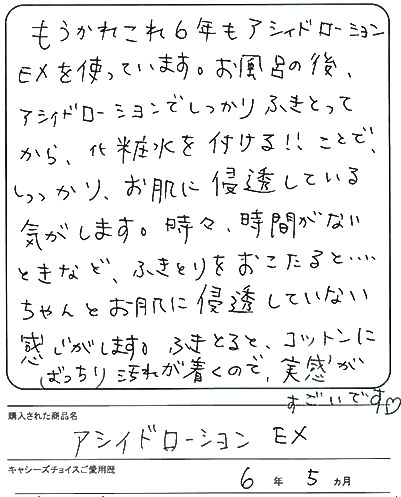 もうかれこれ6年もアシィドローション
EXを使っています。お風呂の後、
アシィドローションでしっかりふきとって
から、化粧水を付ける!!ことで、
しっかり、お肌に浸透している
気がします。時々、時間がない
ときなど、ふきとりをおこたると‥‥
ちゃんとお肌に浸透していない
感じがします。ふきとると、コットンに
ばっちり汚れが着くので、実感が
すごいです♡
購入された商品名
アシィドローション EX
キャシーズチョイスご愛用歴
6 年 5 カ月